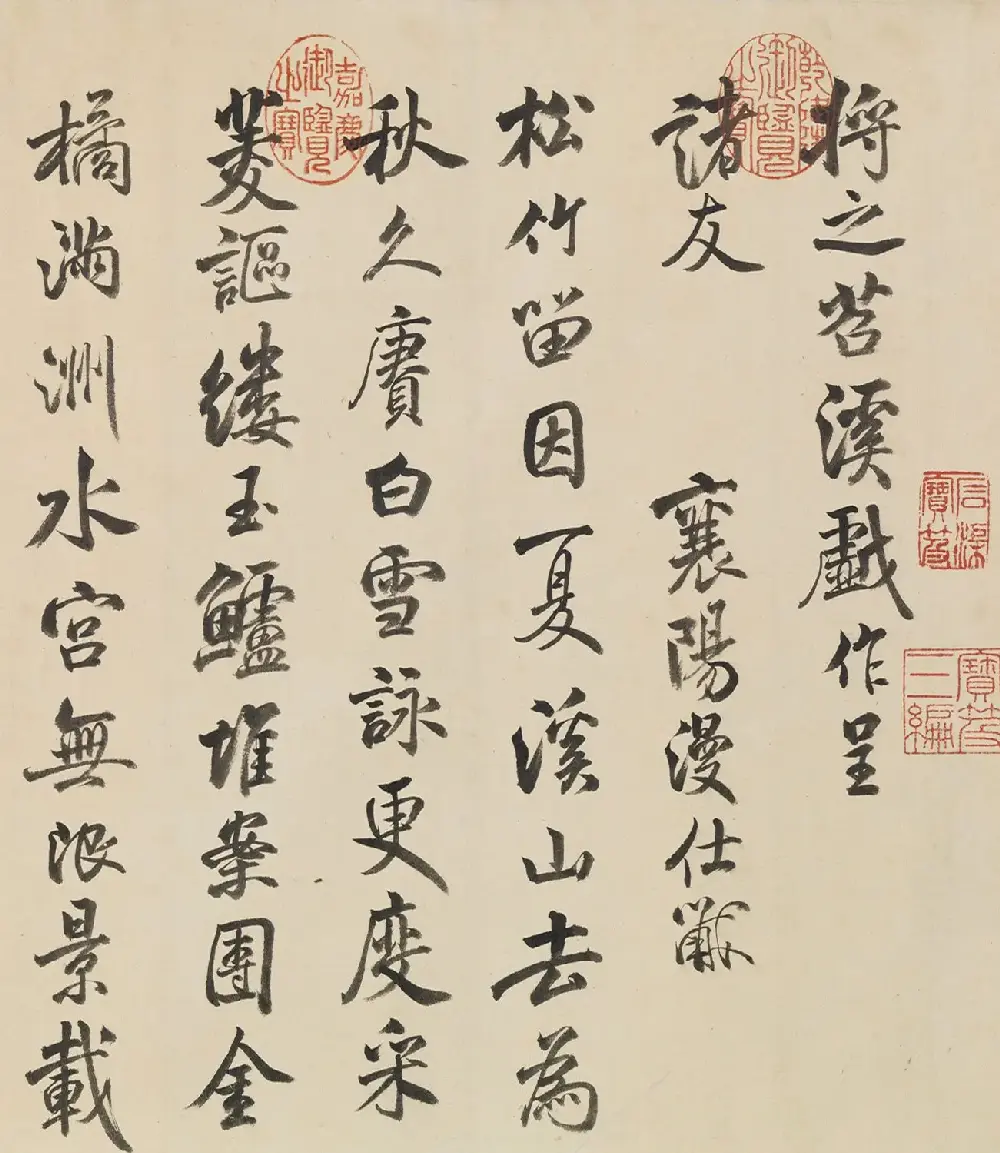 將之苕溪戲作呈
諸友
襄陽漫仕黻
松竹留因夏溪山去為
秋久賡白雪詠更度采
菱謳縷玉鱸堆案團金
橘滿洲水宮無限景載
乾隆御覽之寶
嘉慶御覽之寶
石渠寶笈
寶笈三編